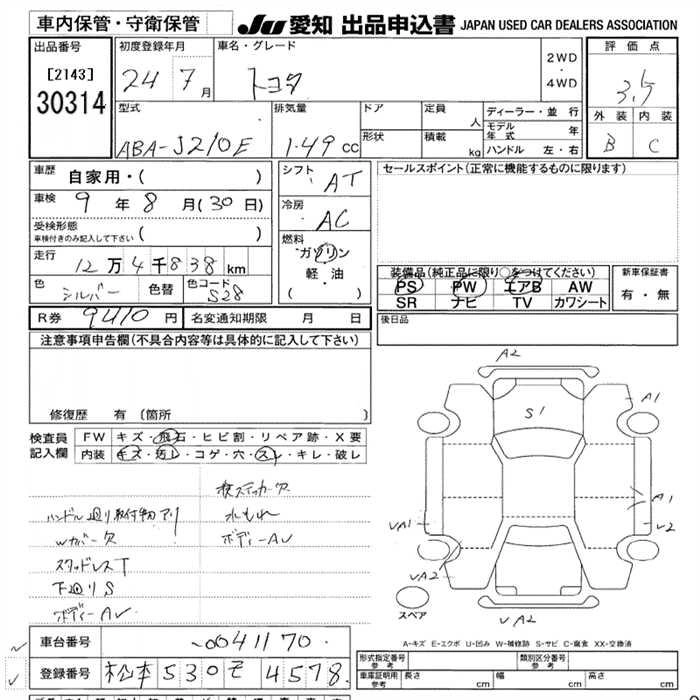 車内保管・守衛保管
JU 愛知 出品申込書 JAPAN USED CAR DEALERS ASSOCIATION
出品番号
[2143]
30314
初度登録年月
24 7月
車名・グレード
トヨタ
2WD
・
4WD
評価点
3.5
外装 内装
B C
型式
ABA-J210E
排気量
1.49 cc
ドア
形状
定員 人
積載 kg
ディーラー・並行
モデル年式 年
ハンドル 左・右
車歴
自家用・( )
車検 9年 8月(30日)
受検形態
車検付きのみ記入して下さい ( )
走行
12万4千838km
色
シルバー
色替
色コード
S28
シフト
AT
冷房
AC
燃料
ガソリン
軽・油
( ・ )
セールスポイント(正常に機能するものに限ります)
装備品(純正品に限り○をつけてください)
PS PW エアB AW
SR ナビ TV カワシート
新車保証書
有・無
R券 9410円
名変通知期限 月 日
後日品
注意事項申告欄(不具合内容等は具体的に記入して下さい)
修復歴 有(箇所 )
検査員
記入欄
FW キズ・飛石・ヒビ割・リペア跡・X要
内装 キズ・汚レ・コゲ・穴・スレ・キレ・破レ
検ステッカー欠
ハンドル廻り取付跡アリ
水もれ
Wカバー欠
ボディーAU
スタッドレスT
下廻りS
ボディーAU
A2
S1
A1
A1
U2
UA1
UA2
UA2
スペア
A-キズ E-エクボ U-凹み W-補修跡 S-サビ C-腐食 XX-交換済
車台番号
0041170
登録番号
松本530モ4578
形式指定番号
参考
類別区分番号
参考
車庫証明用
参考
長さ cm
幅 cm
高さ cm